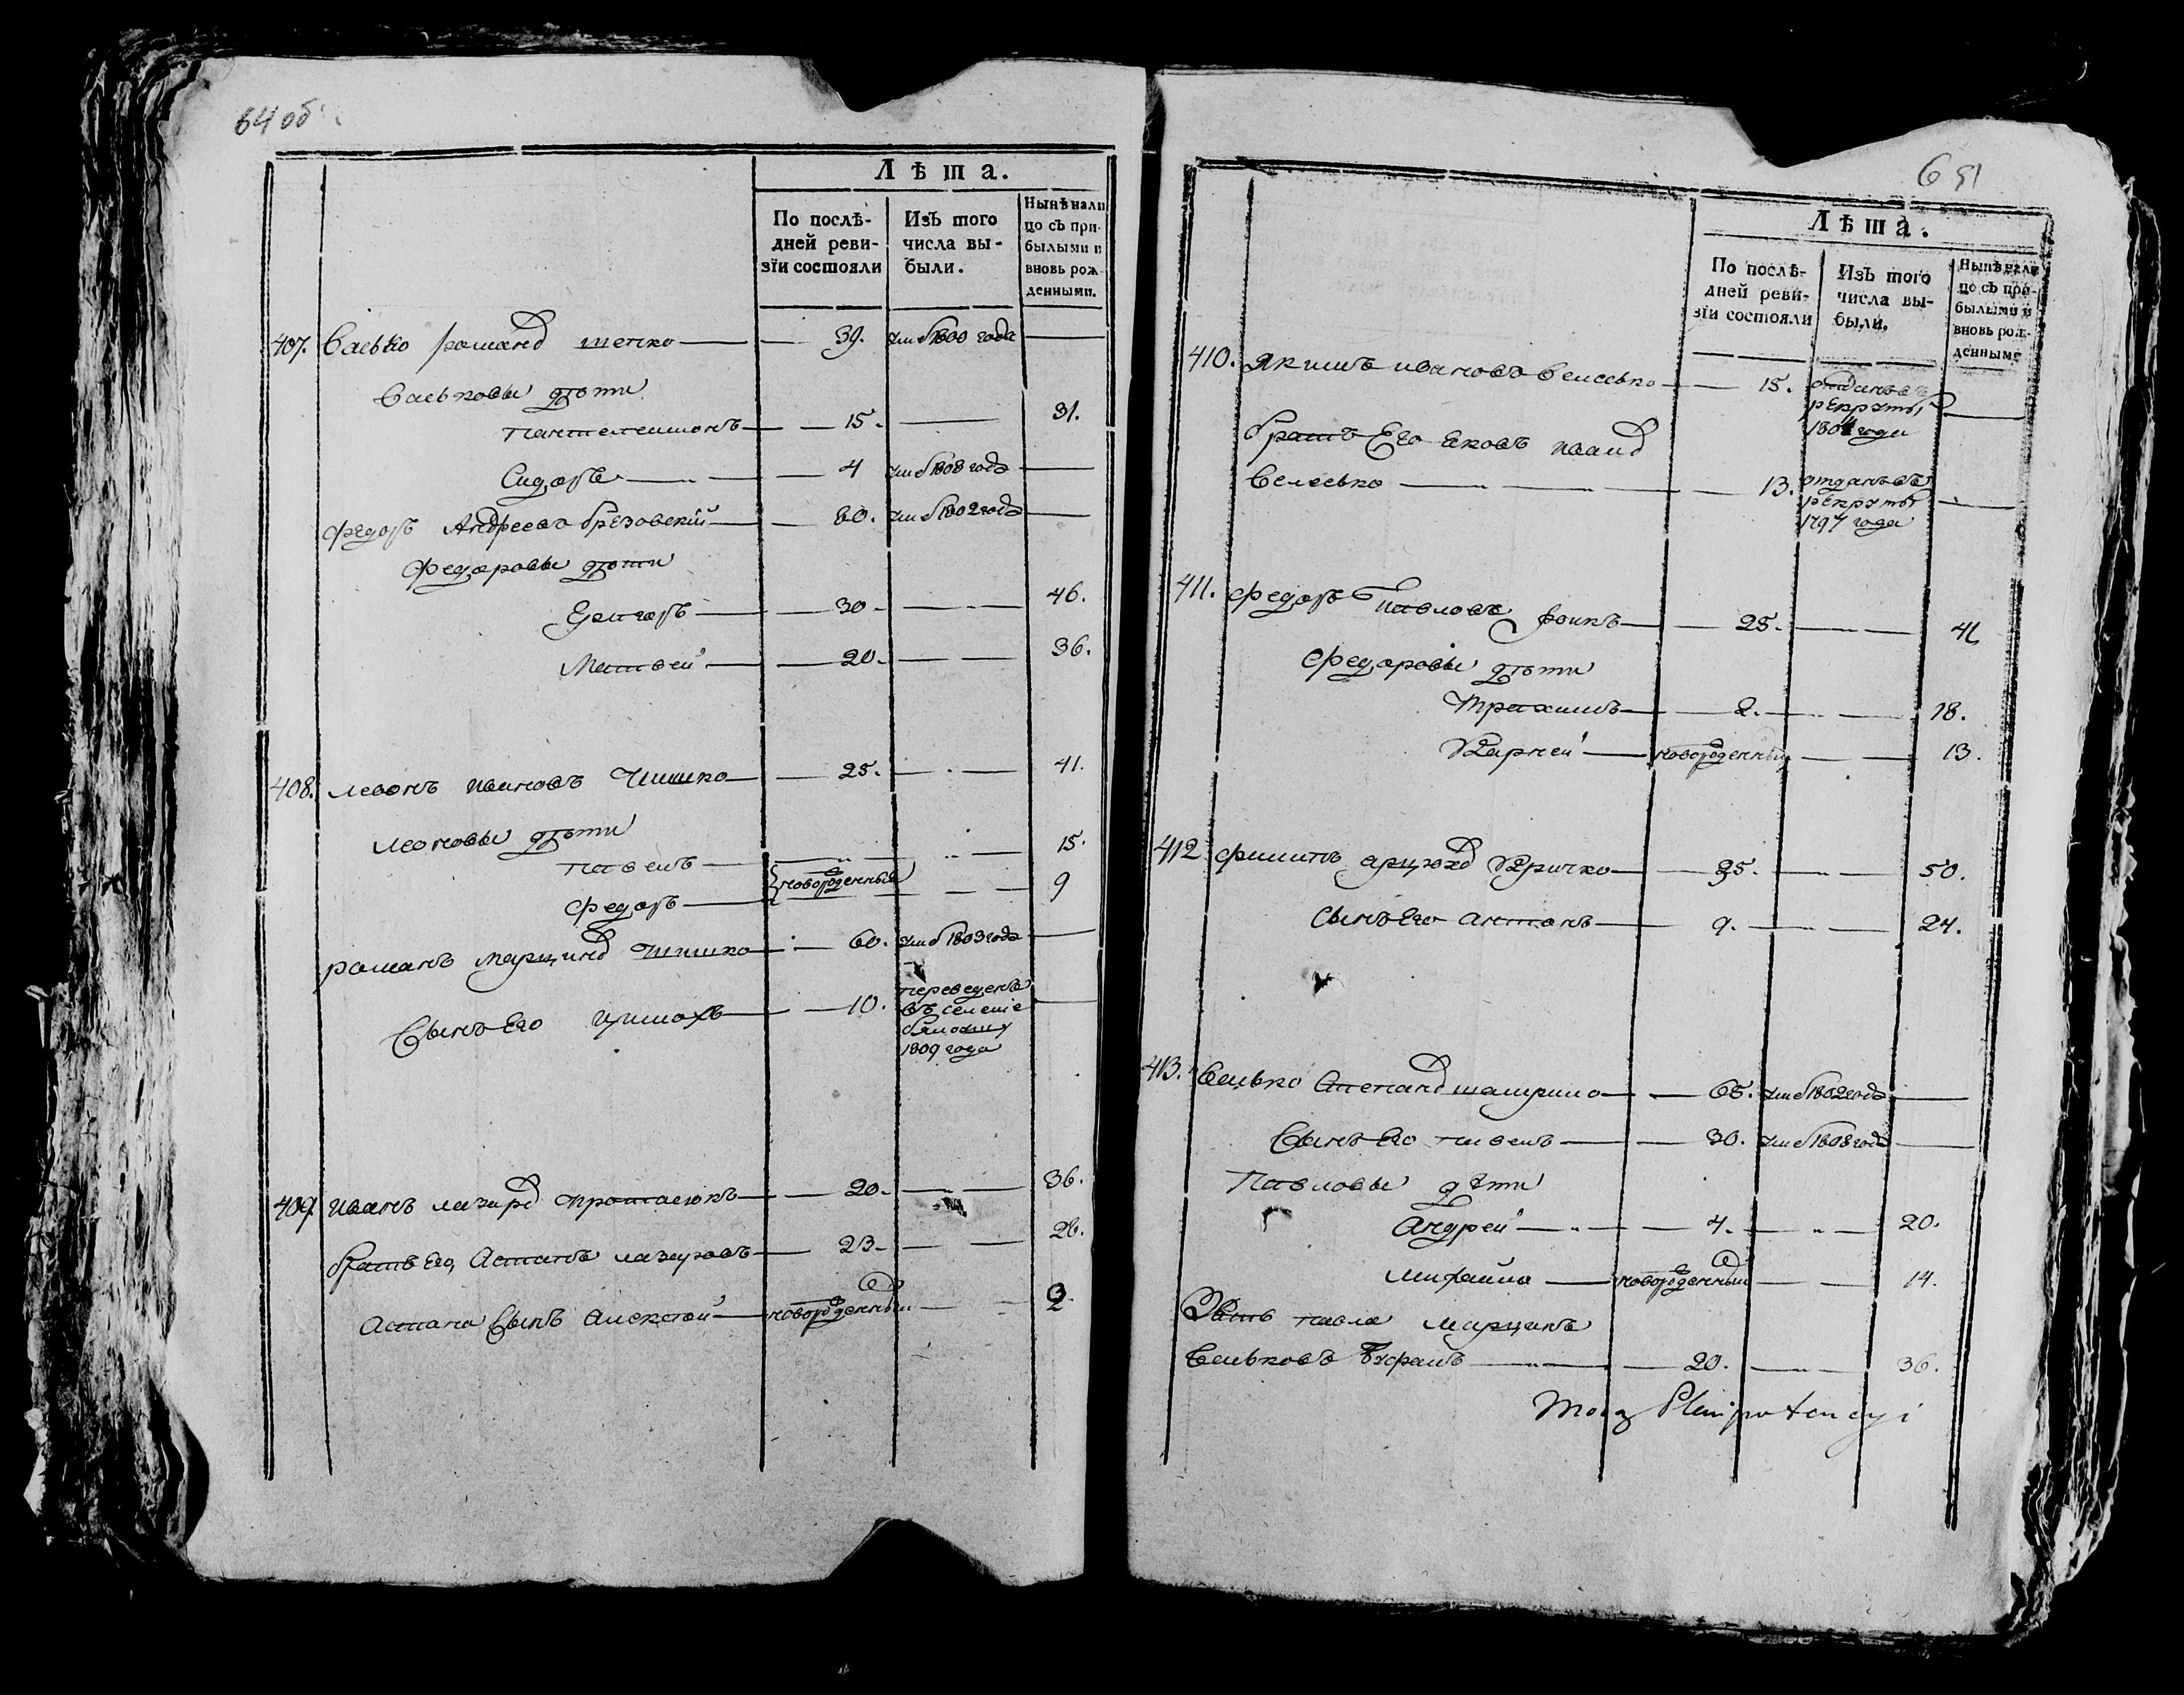 64 об
Лѣта.
По послѣ-
дней реви-
зїи состояли
Изъ того
числа вы-
были.
Нынѣ нали
цо съ при-
былыми и
вновь рож
денными.
407. Васько романов 39. умеръ 1800 года
Васьковы дѣти
Пантелеимонъ 15. 31.
Сидоръ 4 умеръ 1808 года
Федоръ Андреевъ брезовскій 60. умеръ 1802 года
Федоровы дѣти
Григоръ 30 46.
Матвей 20. 36.
408. Леонъ Ивановъ Чишко 25. 41.
Леоновы дѣти
Павелъ 15.
новорожденный
Федоръ 9
романъ Марцинов Чишко 60. умеръ 1803 года
Сынъ Его 10. переведенъ
въ селеніе
1809 года
409. Иванъ Лазаров 20. 36.
братъ Его, Астапъ Лазаровъ 23. 26.
Астапа Сынъ Алексей новорожденный 2
651
Лѣта.
По послѣ-
дней реви-
зїи состояли
Изъ того
числа вы-
были.
Нынѣ нали
цо съ при-
былыми и
вновь рож-
денными
410. Якимъ Ивановъ 15. отданъ въ
рекруты
1804 года
братъ Его Яковъ Иванов
13. отданъ въ
рекруты
1797 года
411. Федоръ Павловъ 25. 41
Федоровы дѣти
Трахимъ 2. 18.
новорожденный 13.
412 Филипъ 35. 50.
Сынъ Его Антонъ 9. 24.
413. Васько Степанов 65. умеръ 1802 года
Сынъ Его Павелъ 30. умеръ 1808 года
Павловы дѣти
Андрей 4. 20.
Михайла новорожденный 14.
Зять Павла Марцинъ
Васьковъ 20. 36.
Mocą Plenipotencyi